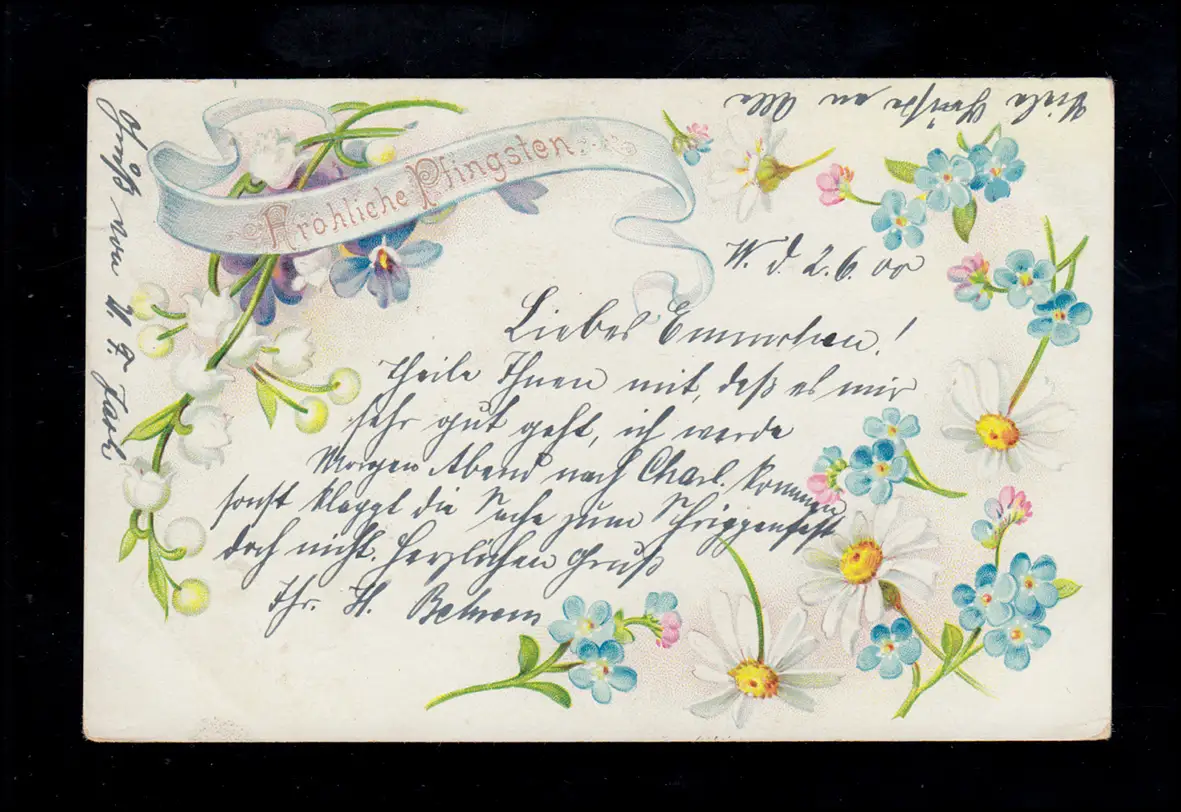 Fröhliche Pfingsten
Viele Grüße an Alle
W. d 2.6.00
Liebes Emmchen!
Theile Ihnen mit, daß es mir
sehr gut geht, ich werde
Morgen Abend nach Charl. kommen
sonst klappt die Sache zum
doch nicht. Herzlichen Gruß
Ihr. H.
Gruß von